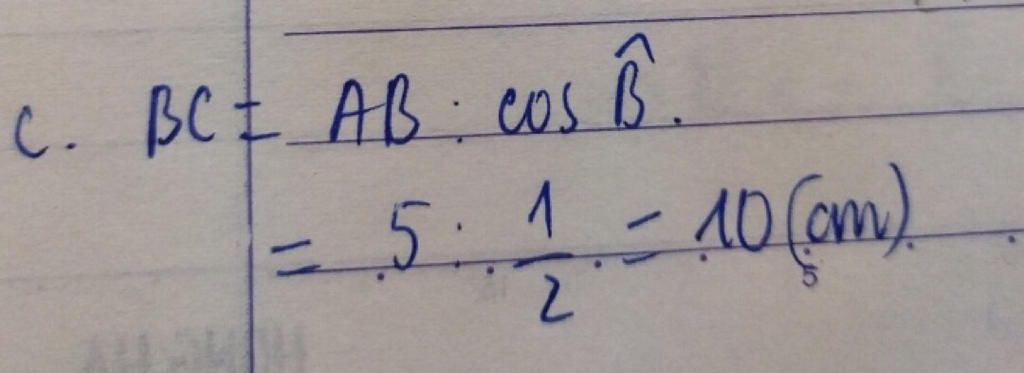 c. BC = AB : cos B̂.
= 5 : 1/2 = 10 (cm)